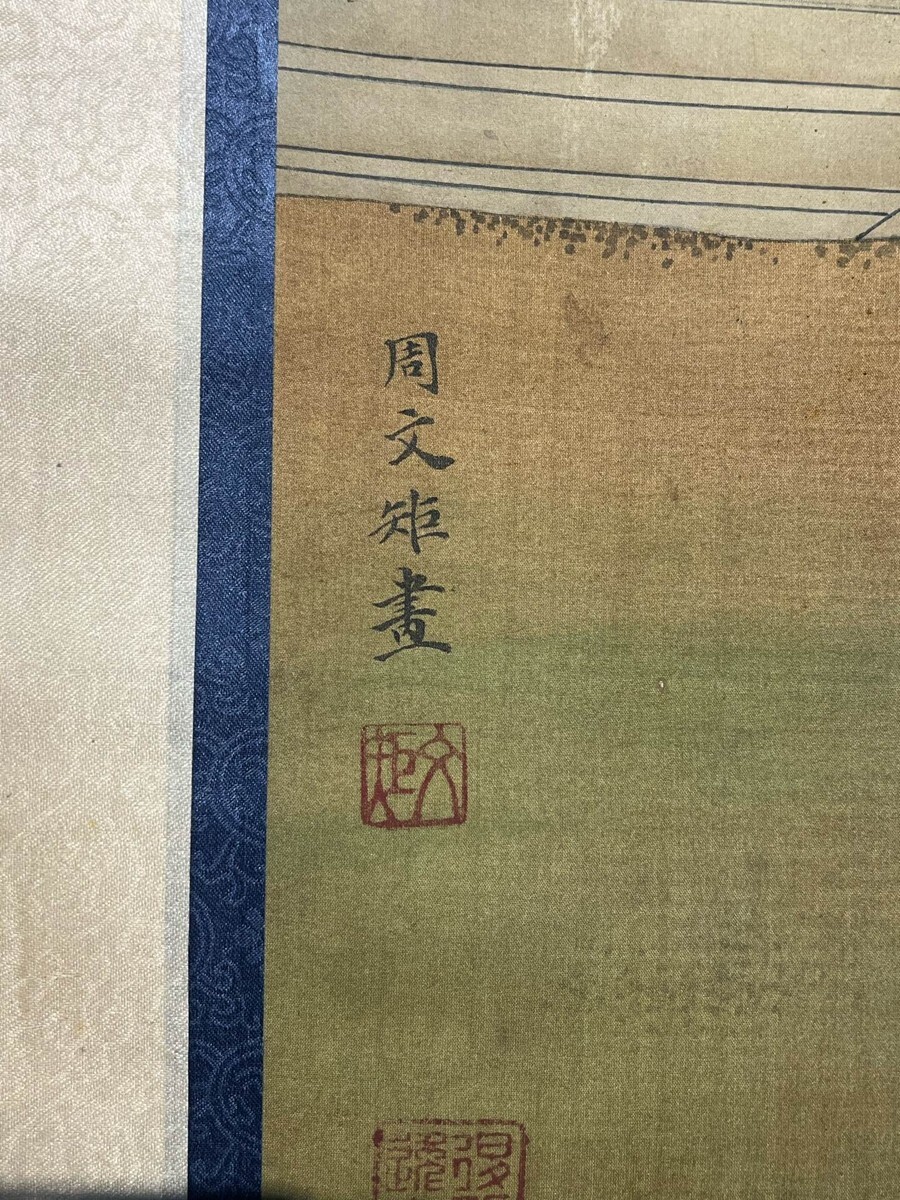 周文矩畫
文矩